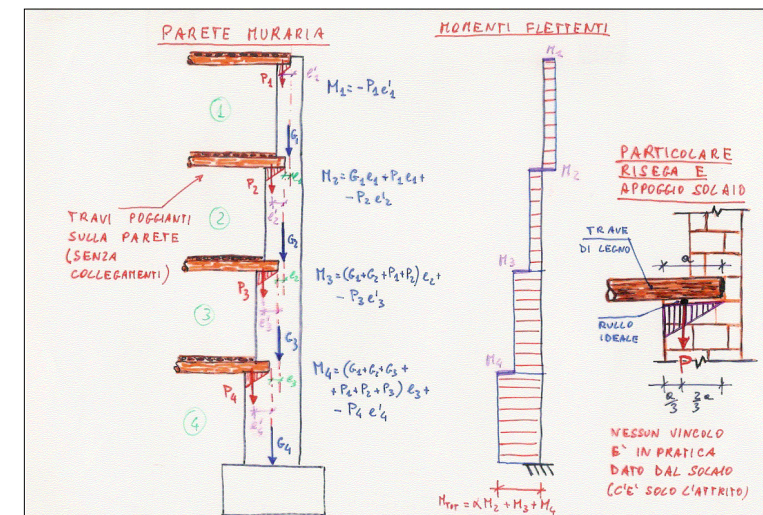 PARETE MURARIA
P1
e'1
M1 = -P1 e'1
1
G1
P2
e1
e'2
M2 = G1 e1 + P1 e1 +
- P2 e'2
TRAVI POGGIANTI
SULLA PARETE
(SENZA
COLLEGAMENTI)
2
G2
P3
e2
e'3
M3 = (G1+G2+P1+P2) e2 +
- P3 e'3
3
G3
P4
e3
e'4
M4 = (G1+G2+G3+
+P1+P2+P3) e3 +
- P4 e'4
4
G4
MOMENTI FLETTENTI
M1
M2
M3
M4
MTOT = αM2 + M3 + M4
PARTICOLARE
RISEGA E
APPOGGIO SOLAIO
TRAVE
DI LEGNO
a
RULLO
IDEALE
P
a/3 2/3 a
NESSUN VINCOLO
E' IN PRATICA
DATO DAL SOLAIO
(C'E' SOLO L'ATTRITO)